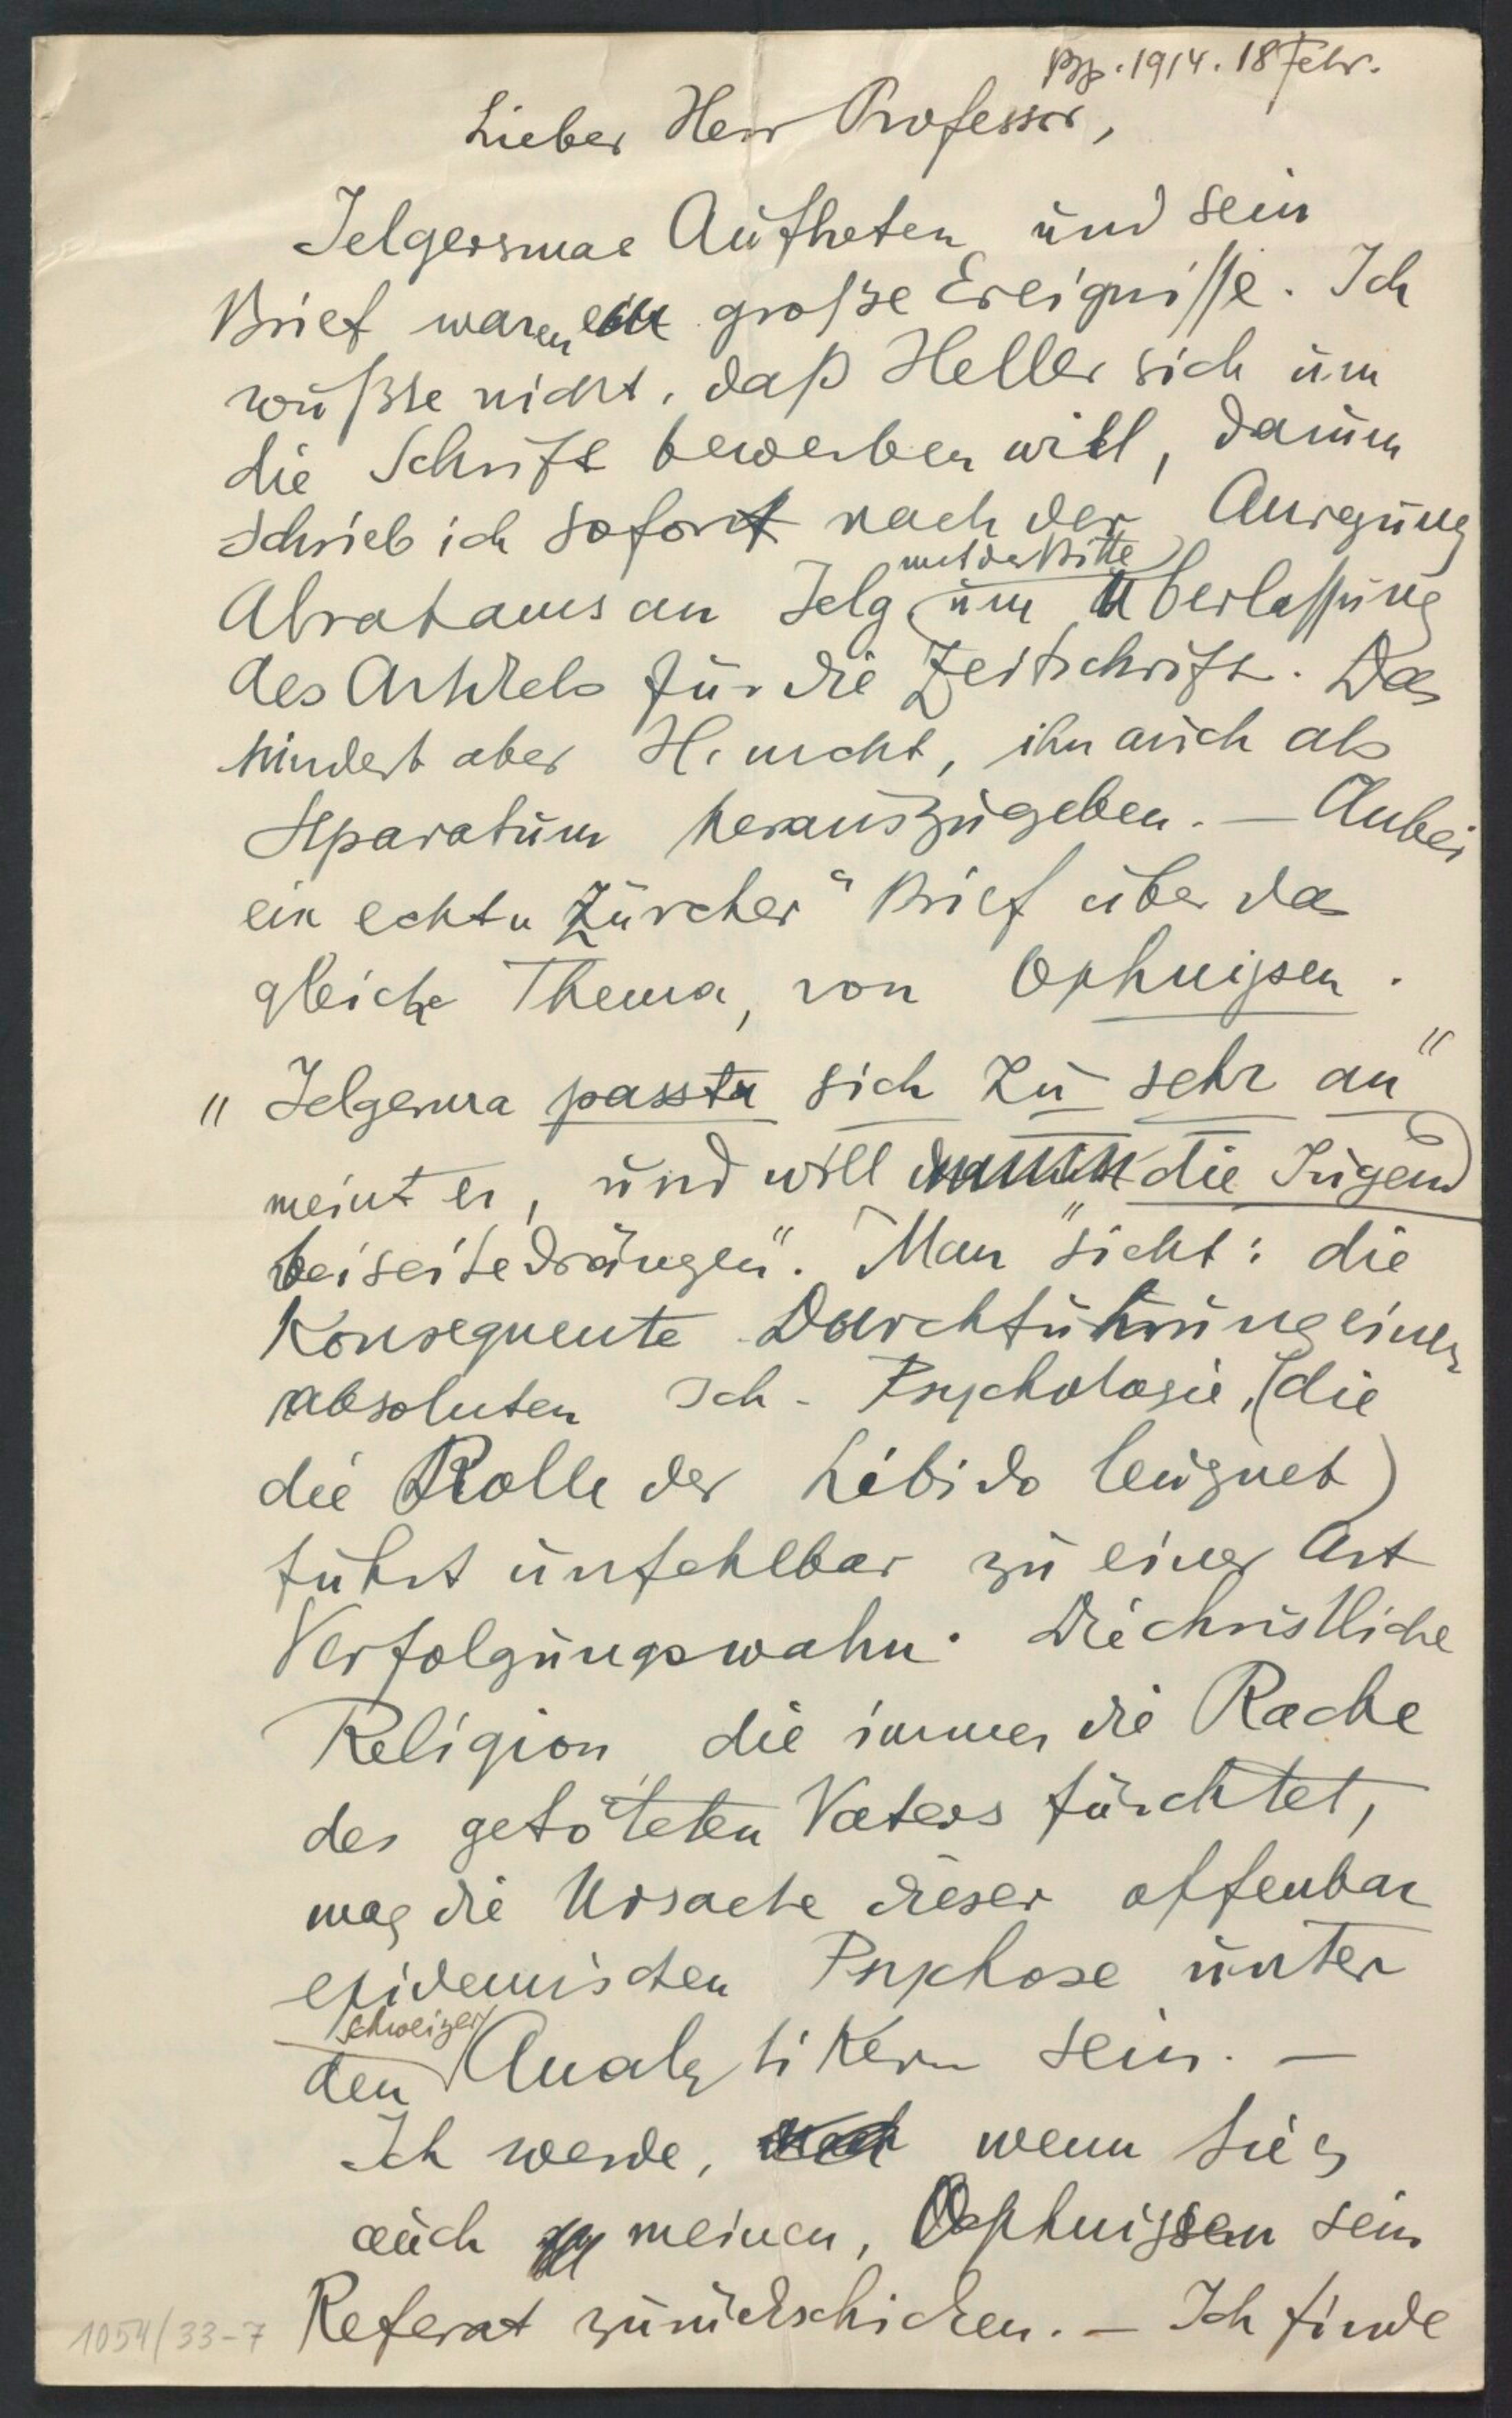 Bp. 1914. 18 Febr.
Lieber Herr Professor,
Jelgersmas Auftreten und sein
Brief waren große Ereignisse. Ich
wußte nicht, daß Heller sich um
die Schrift bewerben will, darum
schrieb ich sofort nach der Anregung
Abrahams an Jelg mit der Bitte um Überlassung
des Artikels für die Zeitschrift. Das
hindert aber H. nicht, ihn auch als
Separatum herauszugeben. — Anbei
ein echter Zürcher“ Brief über das
gleiche Thema, von Ophuijsen.
„Jelgersma passte sich zu sehr an“
meint er, und will die Jugend
beiseitedrängen“. Man sieht: die
Konsequente Durchführung einer
absoluten Ich-Psychologie, (die
die Rolle der Libido leugnet)
führt unfehlbar zu einer Art
Verfolgungswahn. Die christliche
Religion, die immer die Rache
des getöteten Vaters fürchtet,
mag die Ursache dieser offenbar
epidemischen Psychose unter
den Schweizer Analytikern sein. —
Ich werde, wenn Sie es
auch meinen, Ophuijsen sein
Referat zurückschicken. — Ich finde
1054/33-7